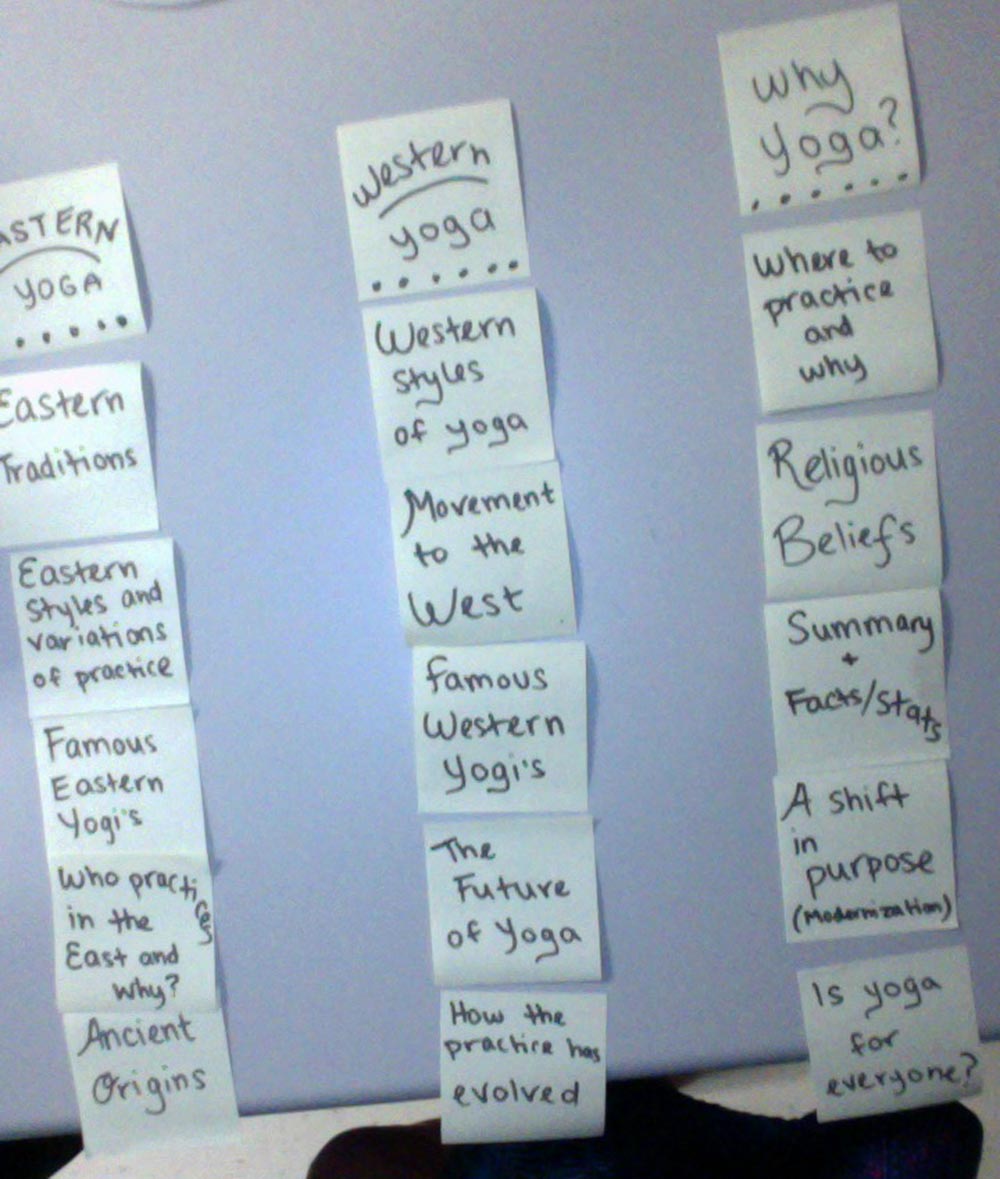 ASTERN
YOGA
Eastern
Traditions
Eastern
styles and
variations
of practice
Famous
Eastern
Yogi's
Who practices
in the
East and
why?
Ancient
Origins
Western
yoga
Western
styles
of yoga
Movement
to the
West
Famous
Western
Yogi's
The
Future
of Yoga
How the
practice has
evolved
Why
Yoga?
Where to
practice
and
why
Religious
Beliefs
Summary
+
Facts/Stats
A shift
in
purpose
(Modernization)
Is yoga
for
everyone?